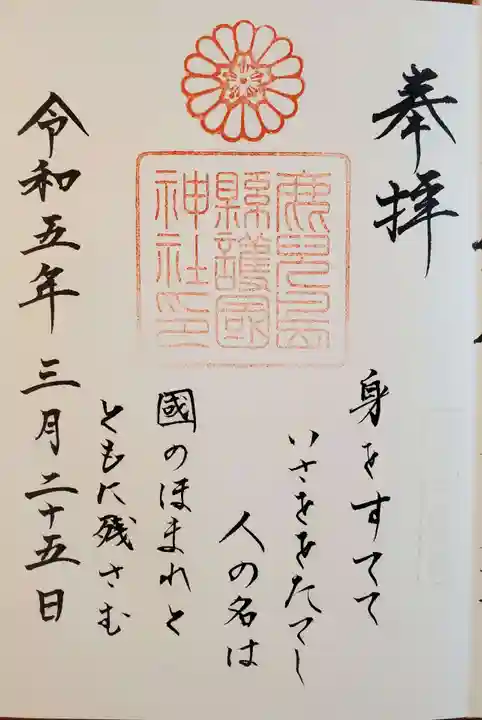 奉拝
身をすてて
いさををたてし
人の名は
國のほまれと
ともに残さむ
鹿児島
縣護國
神社印
令和五年三月二十五日